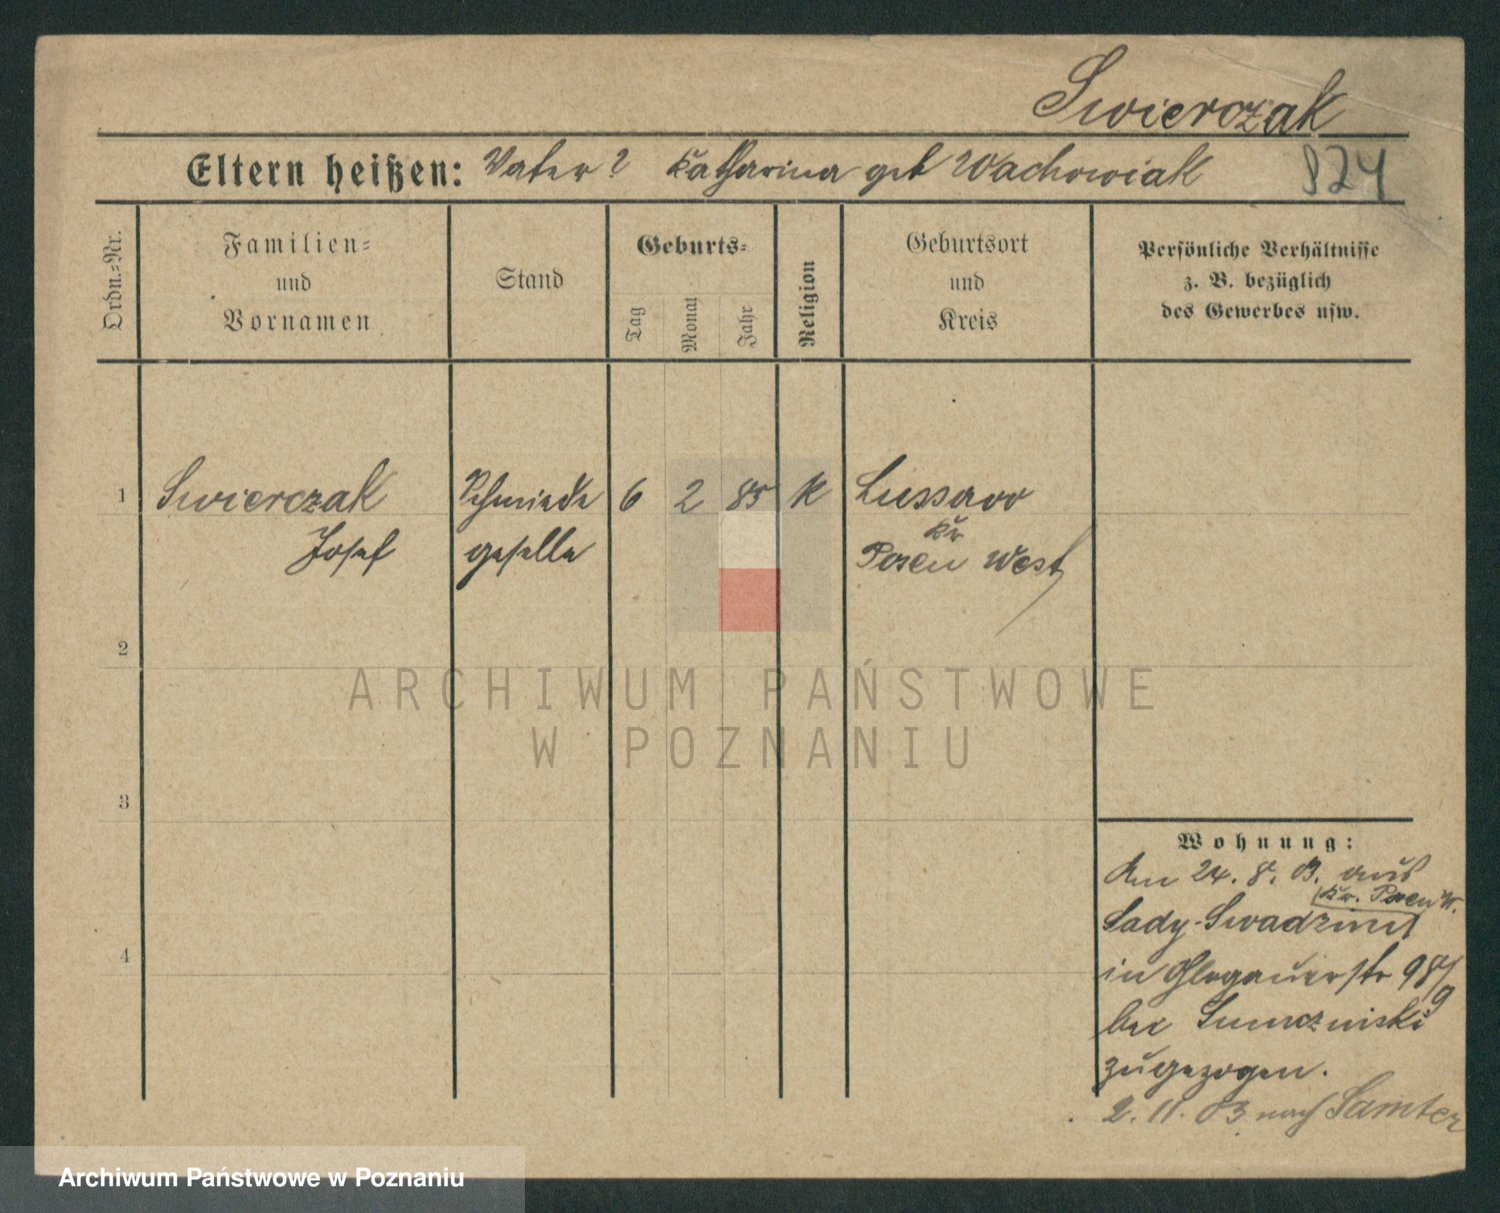 Swierczak
Eltern heißen: Vater? Katharina geb Wachowiak 824
Ordn.-Nr.
Familien-
und
Vornamen
Stand
Geburts-
Tag
Monat
Jahr
Religion
Geburtsort
und
Kreis
Persönliche Verhältnisse
z. B. bezüglich
des Gewerbes usw.
1 Swierczak Schmiede 6 2 85 K Lussowo
Kr
Josef geselle Posen West
2
ARCHIWUM PAŃSTWOWE
W POZNANIU
3
Wohnung:
Am 24. 8. 03. aus
Kr. Posen W.
Sady-
4
in Glogauerstr 98/9
bei
zugezogen.
2. 11. 03 nach Samter
Archiwum Państwowe w Poznaniu